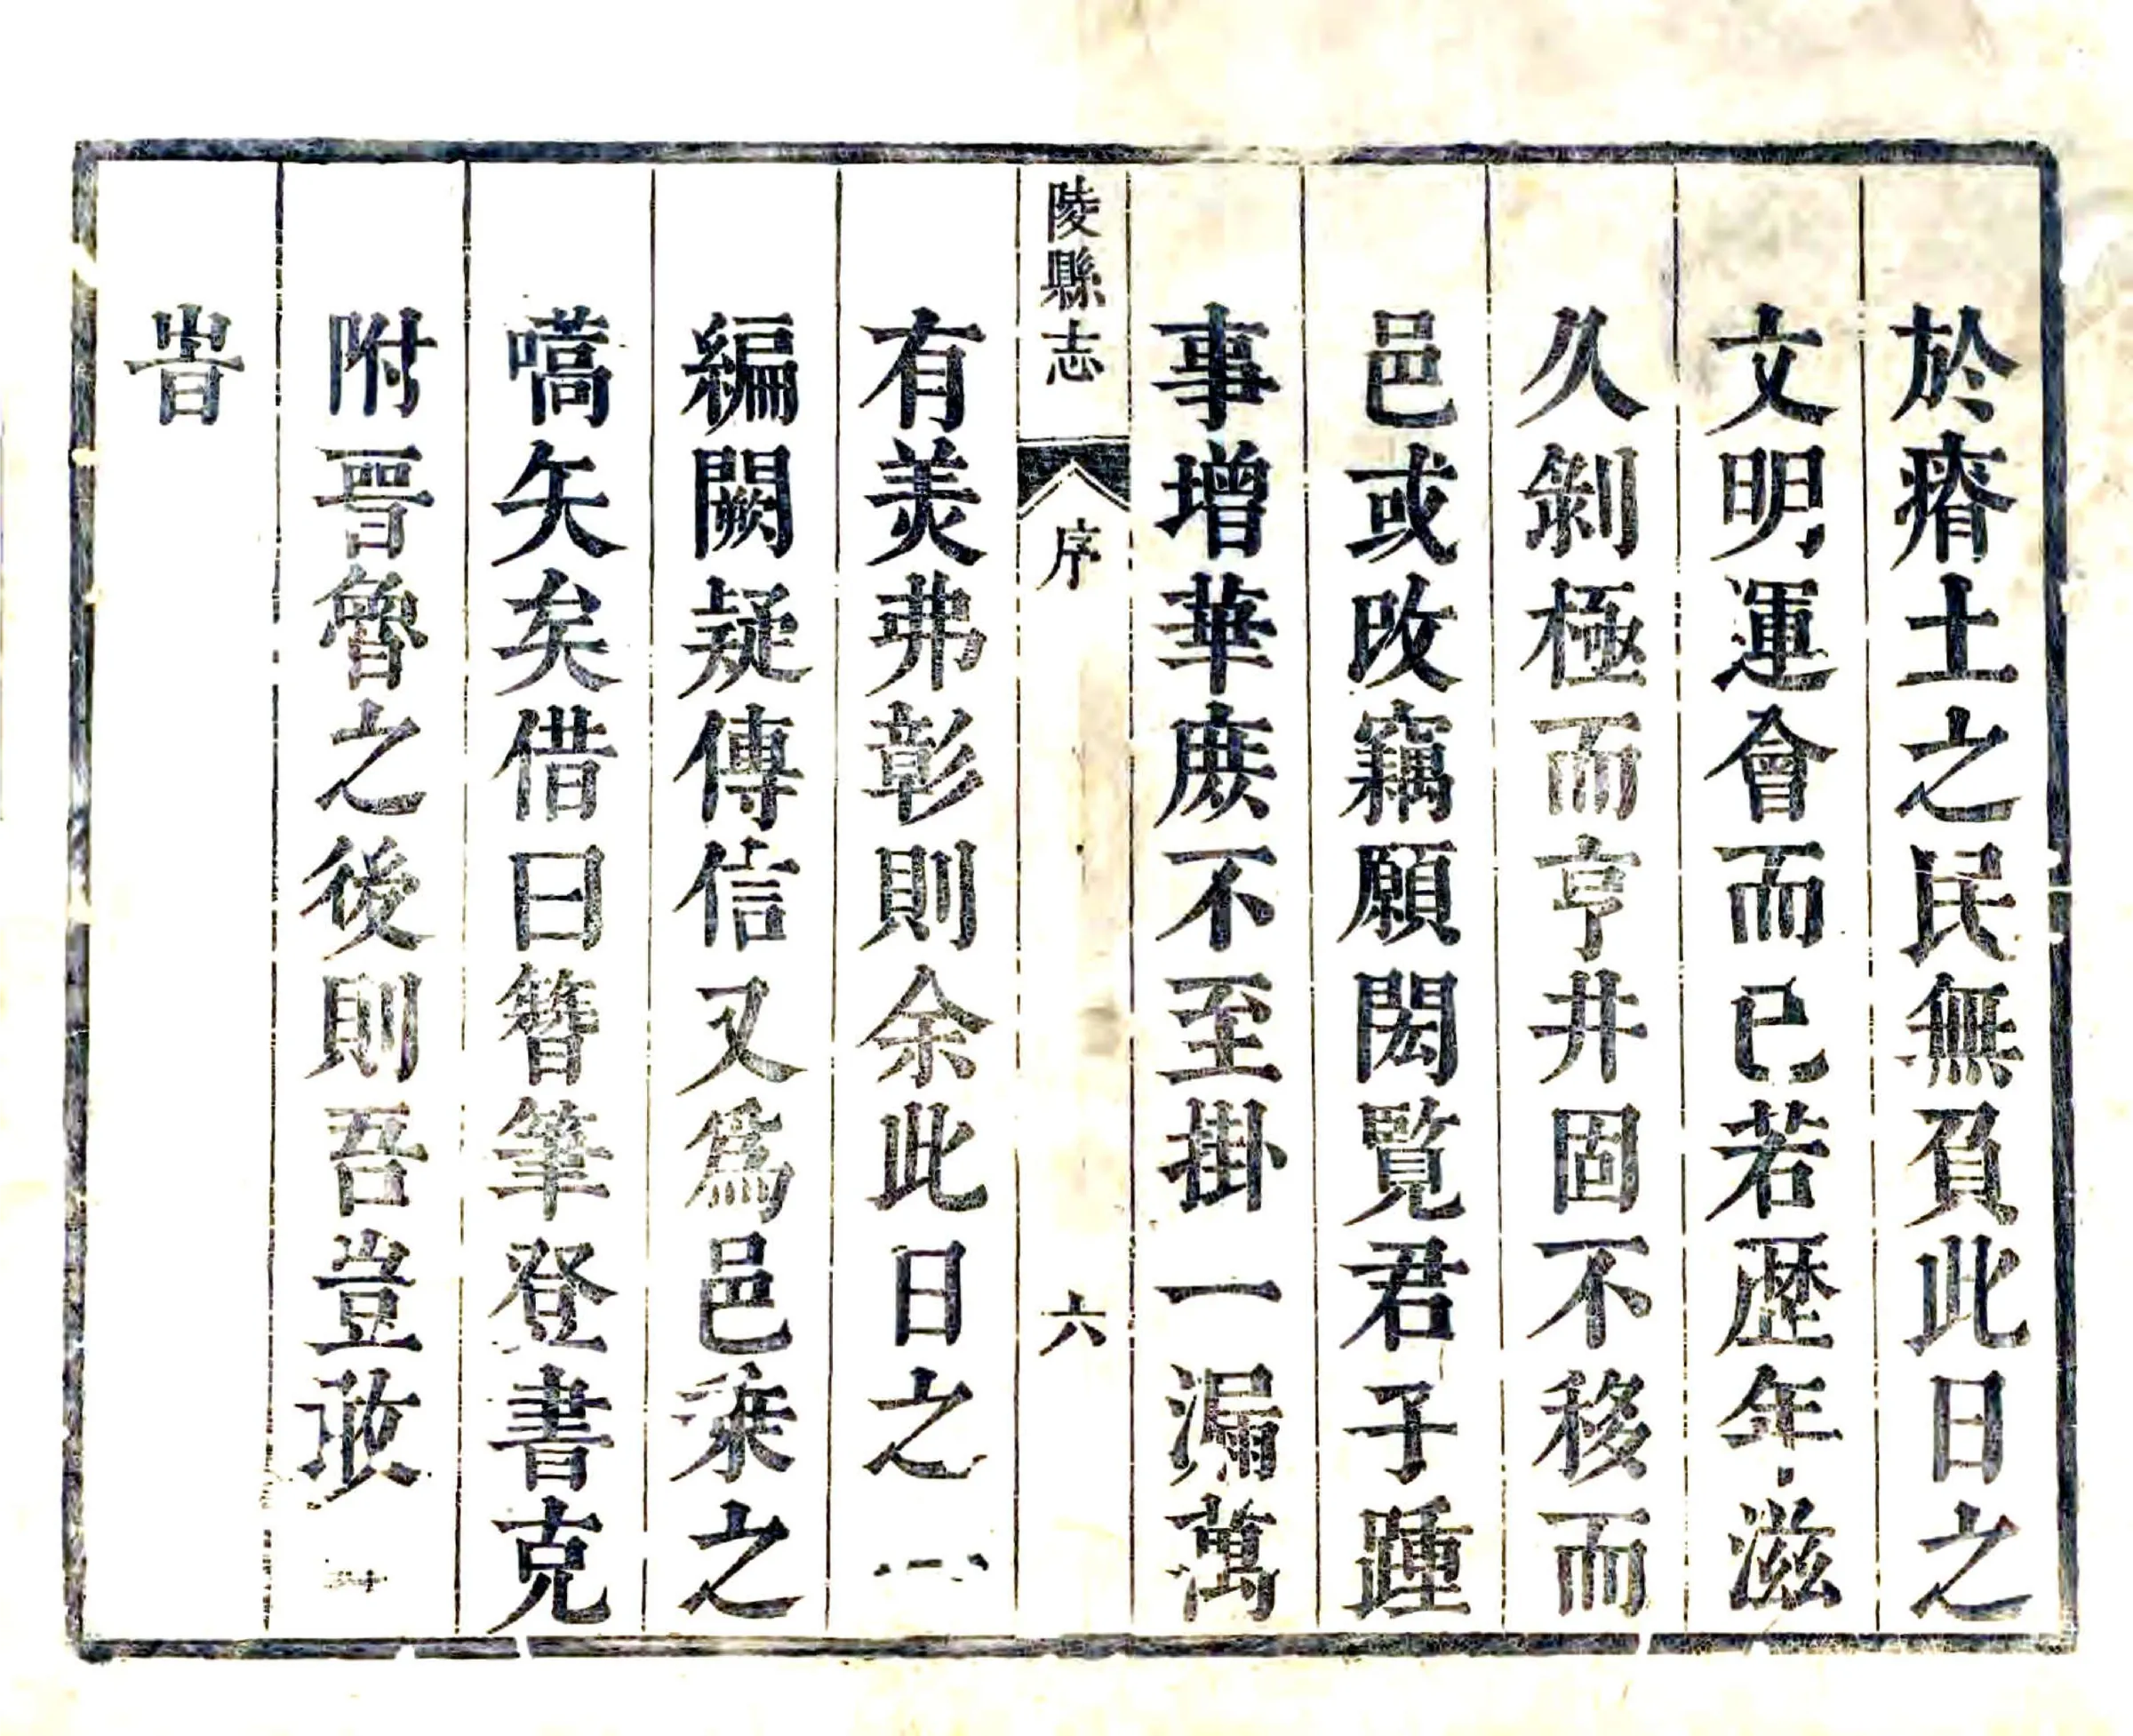 於瘠土之民無負此日之
文明運會而已若歷年滋
久剝極而亨井固不移而
邑或改竊願閎覽君子踵
事增華庶不至掛一漏萬
陵縣志
序
六
有美弗彰則余此日之一
編闕疑傳信又爲邑乘之
嚆矢矣借曰簪筆登書克
附晉魯之後則吾豈敢
旹